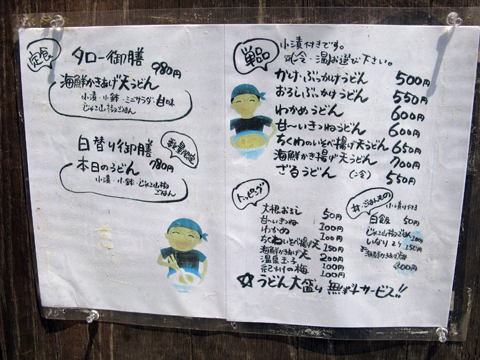 定食
タロー御膳 980円
海鮮かきあげ天うどん
小漬・小鉢・ミニサラダ・甘味
じゃこ山椒ごはん
日替り御膳 780円
数量限定
本日のうどん
小漬・小鉢・じゃこ山椒
ごはん
単品
小漬付きです。
冷・温お選び下さい。
かけ・ぶっかけうどん 500円
おろしぶっかけうどん 550円
わかめうどん 600円
甘〜いきつねうどん 600円
ちくわのいそべ揚げ天うどん 650円
海鮮かき揚げ天うどん 700円
ざるうどん (冷) 550円
トッピング
大根おろし 50円
甘〜いきつね 100円
わかめ 100円
ちくわいそべ揚げ天 150円
海鮮かきあげ天 200円
温泉玉子 100円
紀州の梅 100円
丼・ごはんもの
小漬け付
白飯 50円
じゃこ山椒ごはん
いなり 150円
400円
☆うどん大盛り 無料サービス!!